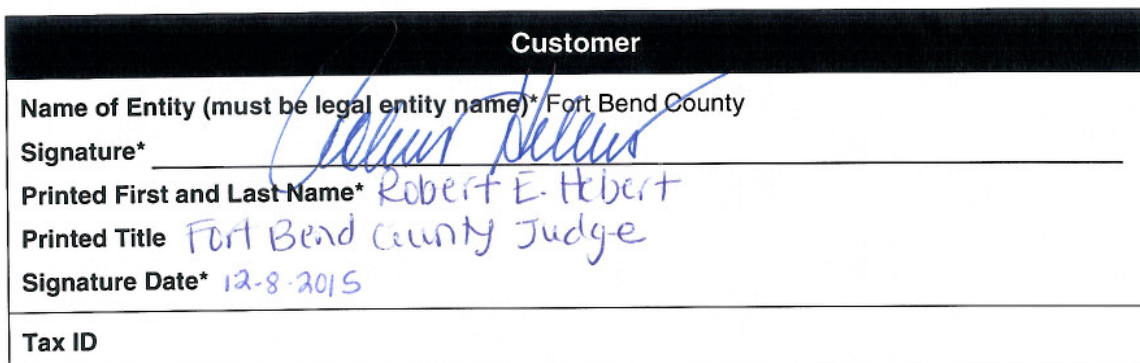 Customer
Name of Entity (must be legal entity name)* Fort Bend County
Signature*
Printed First and Last Name* Robert E. Hebert
Printed Title Fort Bend County Judge
Signature Date* 12-8-2015
Tax ID